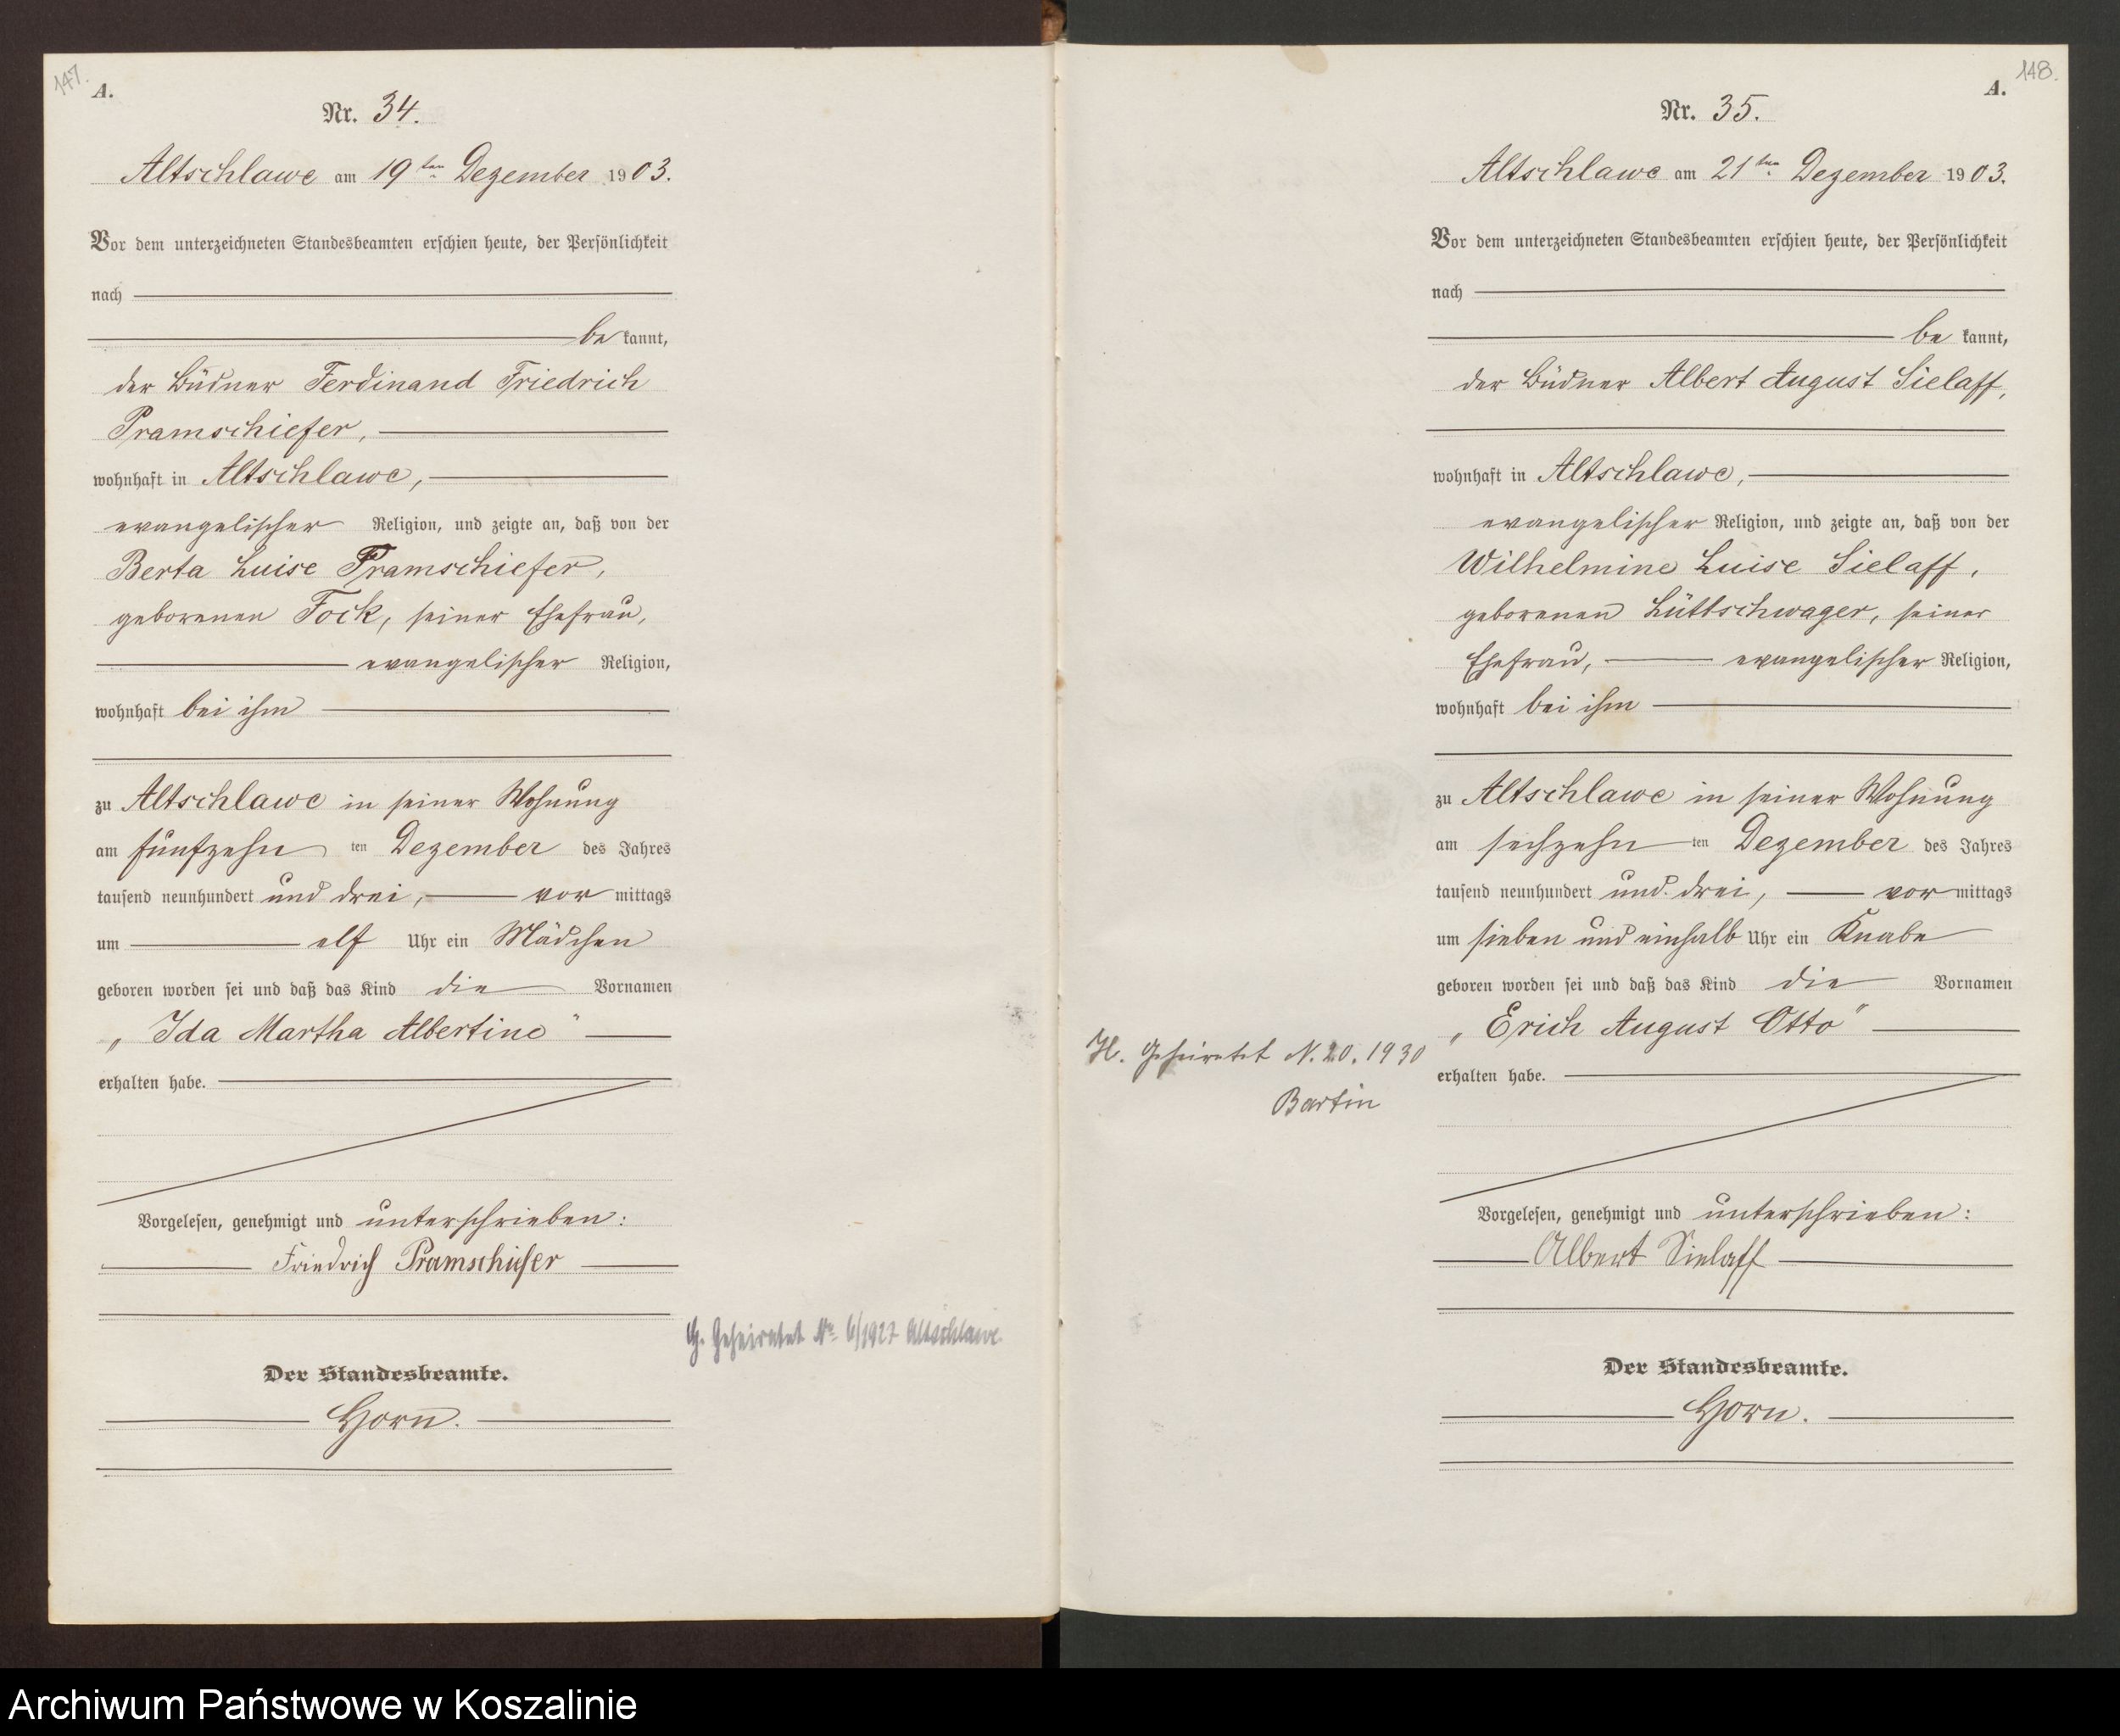 147.
A.
Nr. 34.
Altschlawe am 19ten Dezember 1903.
Vor dem unterzeichneten Standesbeamten erschien heute, der Persönlichkeit
nach
be kannt,
der Büdner Ferdinand Friedrich
Pramschiefer,
wohnhaft in Altschlawe,
evangelischer Religion, und zeigte an, daß von der
Berta Luise Pramschiefer,
geborenen Fock, seiner Ehefrau,
evangelischer Religion,
wohnhaft bei ihm
zu Altschlawe in seiner Wohnung
am fünfzehn ten Dezember des Jahres
tausend neunhundert und drei, vor mittags
um elf Uhr ein Mädchen
geboren worden sei und daß das Kind die Vornamen
„Ida Martha Albertine“
erhalten habe.
Vorgelesen, genehmigt und unterschrieben:
Friedrich Pramschiefer
G. Geheiratet No. 6/1927 Altschlawe.
Der Standesbeamte.
Horn.
148.
A.
Nr. 35.
Altschlawe am 21ten Dezember 1903.
Vor dem unterzeichneten Standesbeamten erschien heute, der Persönlichkeit
nach
be kannt,
der Büdner Albert August Sielaff,
wohnhaft in Altschlawe,
evangelischer Religion, und zeigte an, daß von der
Wilhelmine Luise Sielaff,
geborenen Lüttschwager, seiner
Ehefrau, evangelischer Religion,
wohnhaft bei ihm
zu Altschlawe in seiner Wohnung
am sechzehn ten Dezember des Jahres
tausend neunhundert und drei, vor mittags
um sieben und einhalb Uhr ein Knabe
geboren worden sei und daß das Kind die Vornamen
„Erich August Otto“
H. Geheiratet N. 20. 1930
Bartin
erhalten habe.
Vorgelesen, genehmigt und unterschrieben:
Albert Sielaff
Der Standesbeamte.
Horn.
Archiwum Państwowe w Koszalinie